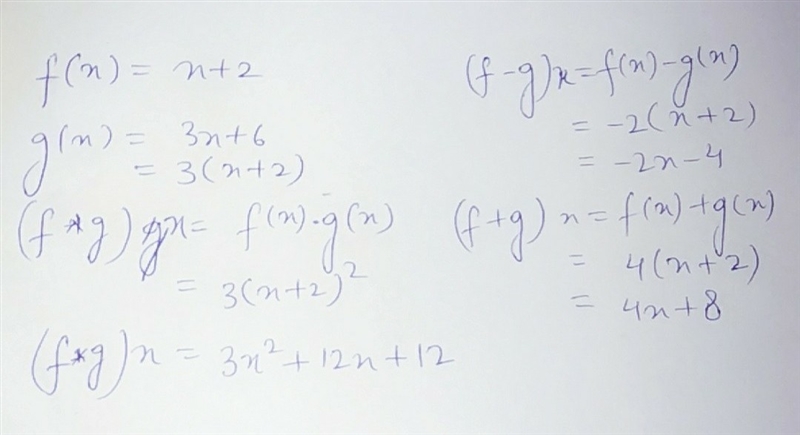 f(x) = x+2
g(x) = 3x+6
= 3(x+2)
(f*g)x = f(x)·g(x)
= 3(x+2)²
(f*g)x = 3x²+12x+12
(f-g)x = f(x)-g(x)
= -2(x+2)
= -2x-4
(f+g) x = f(x)+g(x)
= 4(x+2)
= 4x+8